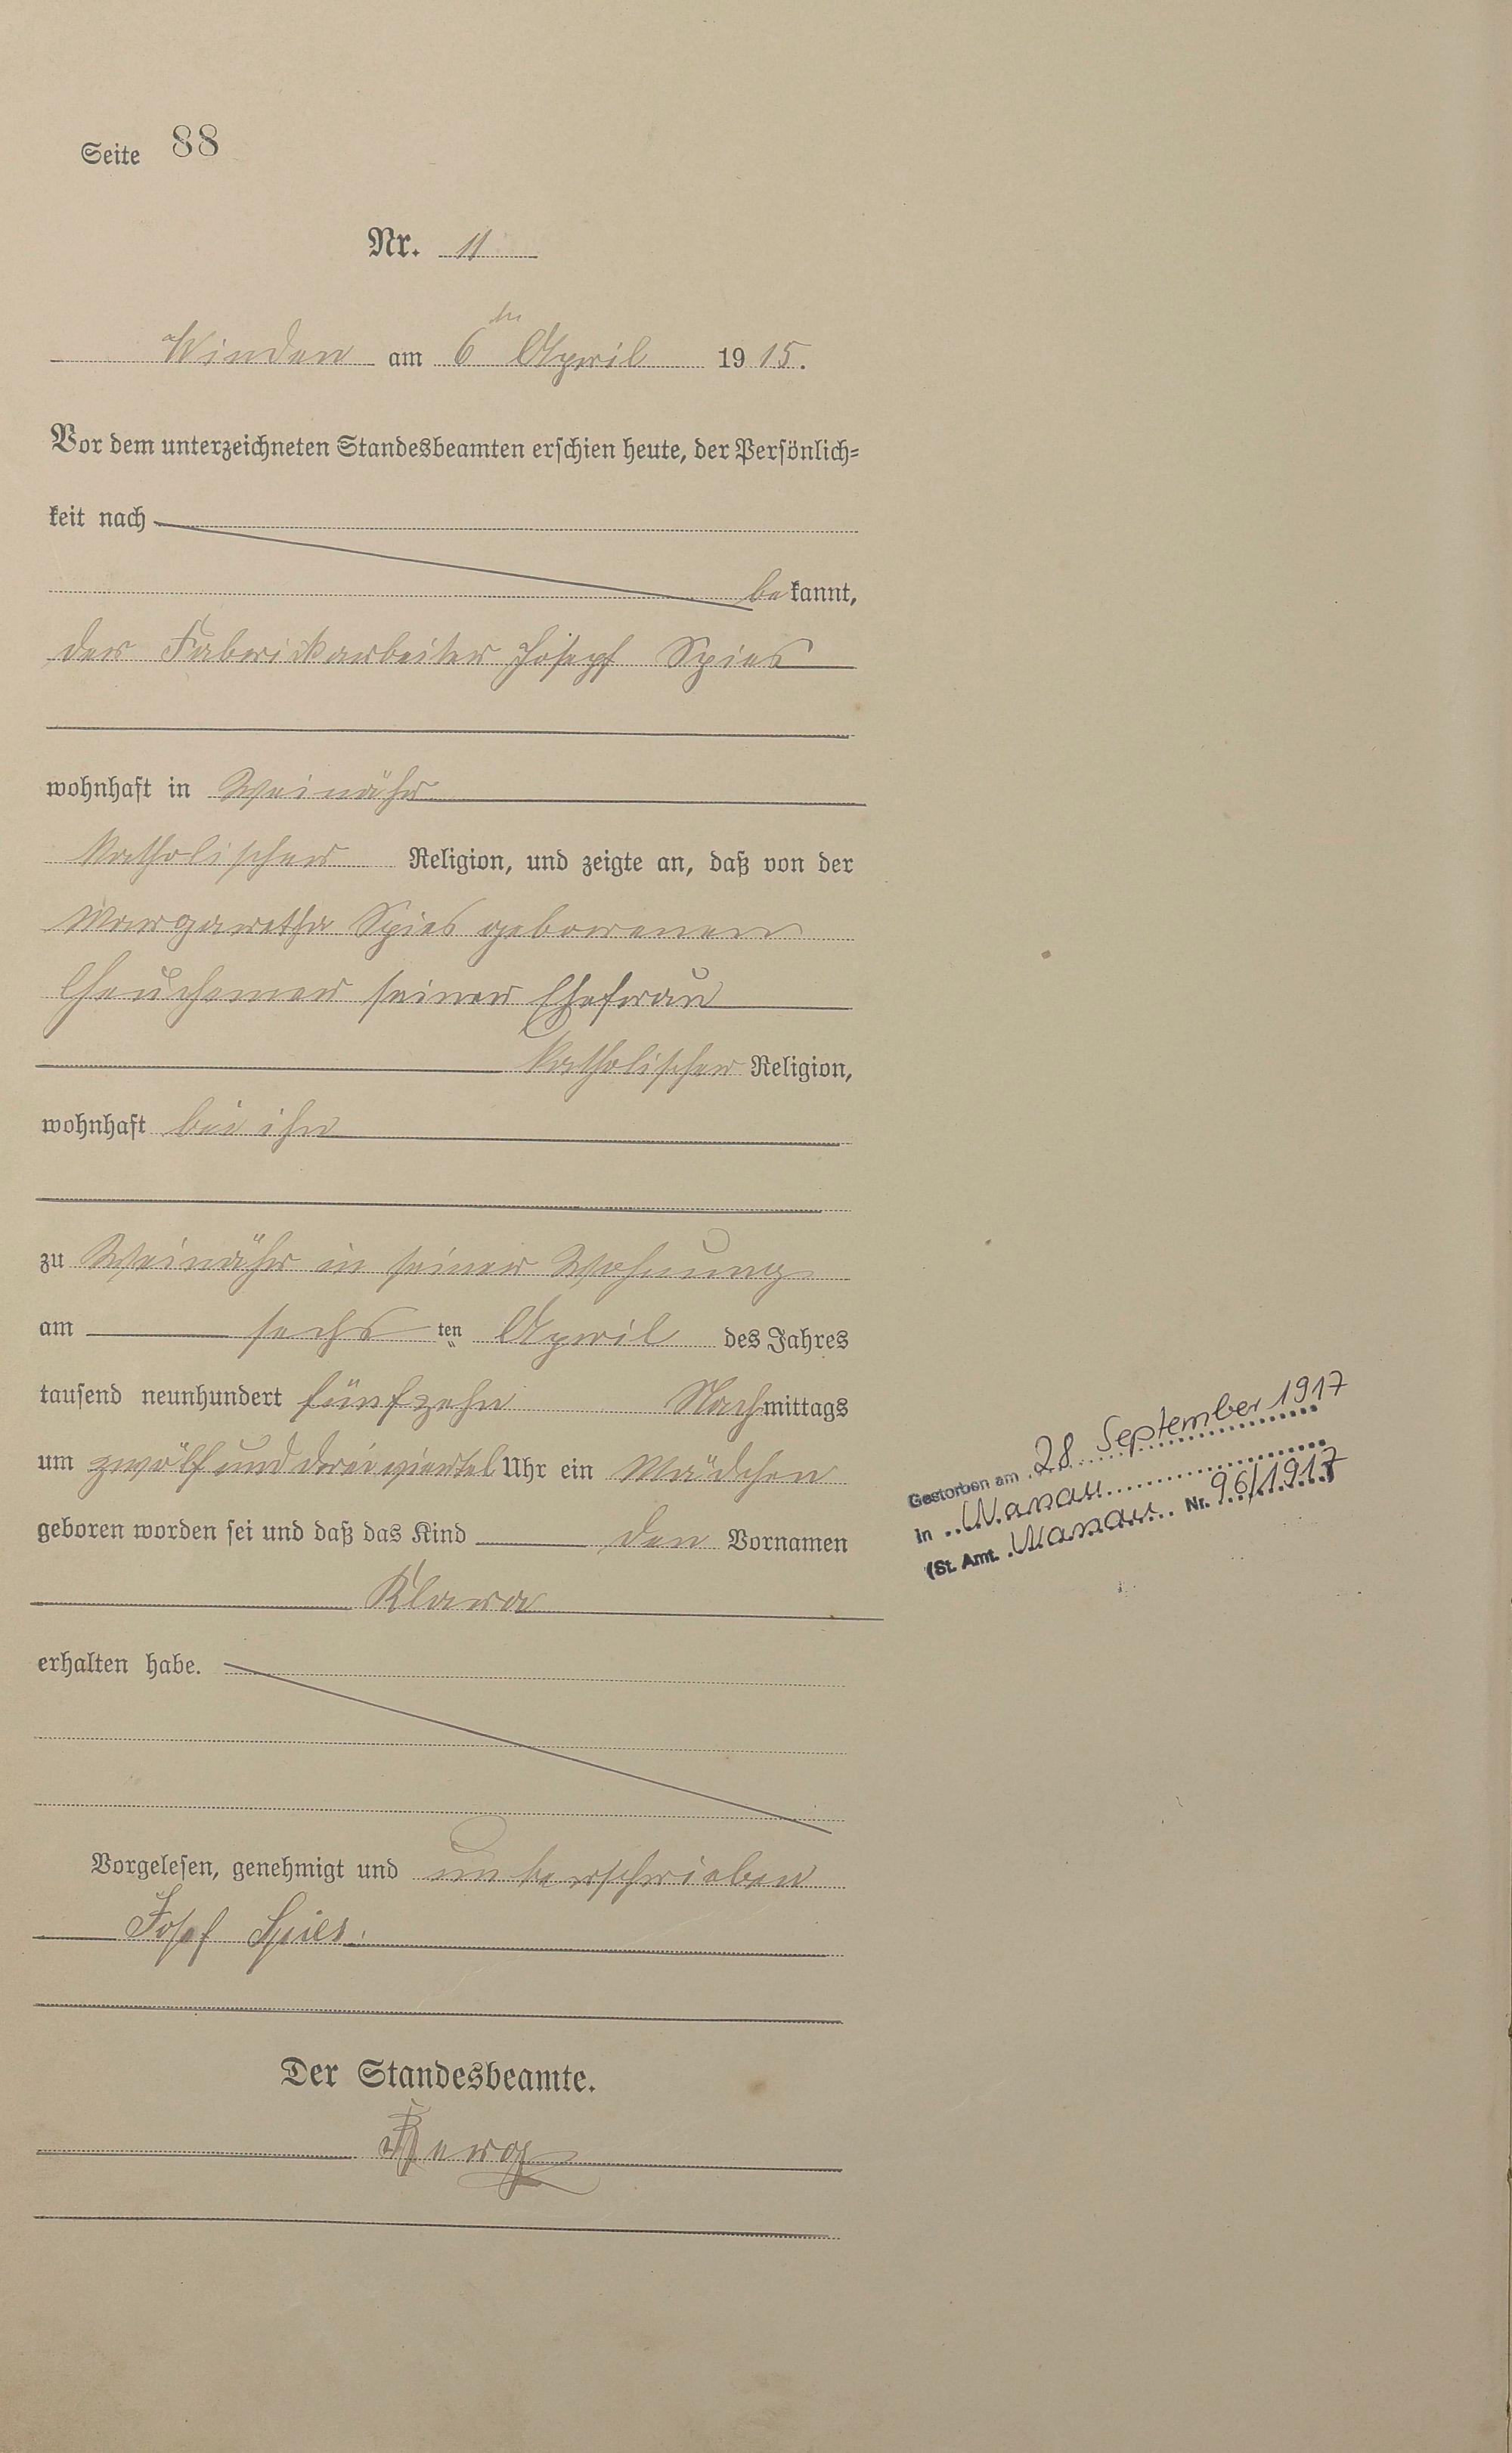 Seite 88
Nr. 11
Winden am 6ten April 1915.
Vor dem unterzeichneten Standesbeamten erschien heute, der Persönlich=
keit nach
bekannt,
der Fabrickarbeiter Joseph Spies
wohnhaft in Weinähr
katholischer Religion, und zeigte an, daß von der
Margaretha Spies geborenen
seiner Ehefrau
katholischer Religion,
wohnhaft bei ihm
zu Weinähr in seiner Wohnung
am sechsten April des Jahres
tausend neunhundert fünfzehn Nachmittags
um zwölf und drei viertel Uhr ein Mädchen
geboren worden sei und daß das Kind den Vornamen
Klara
erhalten habe.
Vorgelesen, genehmigt und unterschrieben
Josef Spies.
Der Standesbeamte.
Gestorben am 28. September 1917
in Nanau
(St. Amt. Nanau Nr. 96/1917)